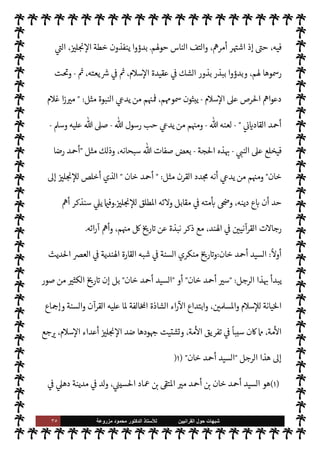 فيه، حتى إذ اشتهر أمرهم، والتف الناس حولهم. بدؤوا ينفذون خطة الإنجليز، التي
رسموها لهم، وبدؤوا ببذر بذور الشك في عقيدة الإسلام، ثم في شريعته، ثم - وتحت
دعواهم الحرص على الإسلام - يبثون سمومهم، فمنهم من يدعي النبوة مثل: " ميرزا غلام
أحمد القادياني " - لعنه الله - ومنهم من يدعي حب رسول الله - صلى الله عليه وسلم -
فيخلع على النبي - بهذه الحجة - بعض صفات الله سبحانه، وذلك مثل "أحمد رضا
خان" ومنهم من يدعي أنه مجدد القرن مثل: " أحمد خان " الذي أخلص للإنجليز إلى
حد أن باع دينه، وضحى بأمته في مقابل ولائه المطلق للإنجليز.وفيما يلي سنذكر أهم
رجالات القرآنيين في الهند، مع ذكر نبذة عن تاريخ كل منهم، وأهم آرائه.
أولاً: السيد أحمد خان:وتاريخ منكري السنة في شبه القارة الهندية في العصر الحديث
يبدأ بهذا الرجل: "سير أحمد خان" أو "السيد أحمد خان" بل إن تاريخ الكثير من صور
الخيانة للإسلام والمسلمين، وابتداع الآراء الشاذة المخالفة لما عليه القرآن والسنة وإجماع
الأمة، مما كان سبباً في تفريق الأمة، وتشتيت جهودها ضد الإنجليز أعداء الإسلام، يرجع
إلى هذا الرجل "السيد أحمد خان" (١(
(١)هو السيد أحمد خان بن أحمد مير المتقي بن عماد الحسيني، ولد في مدينة دهلي في
شبهات حول القرآنيين للأستاذ الدكتور محمود مزروعة ٣٥